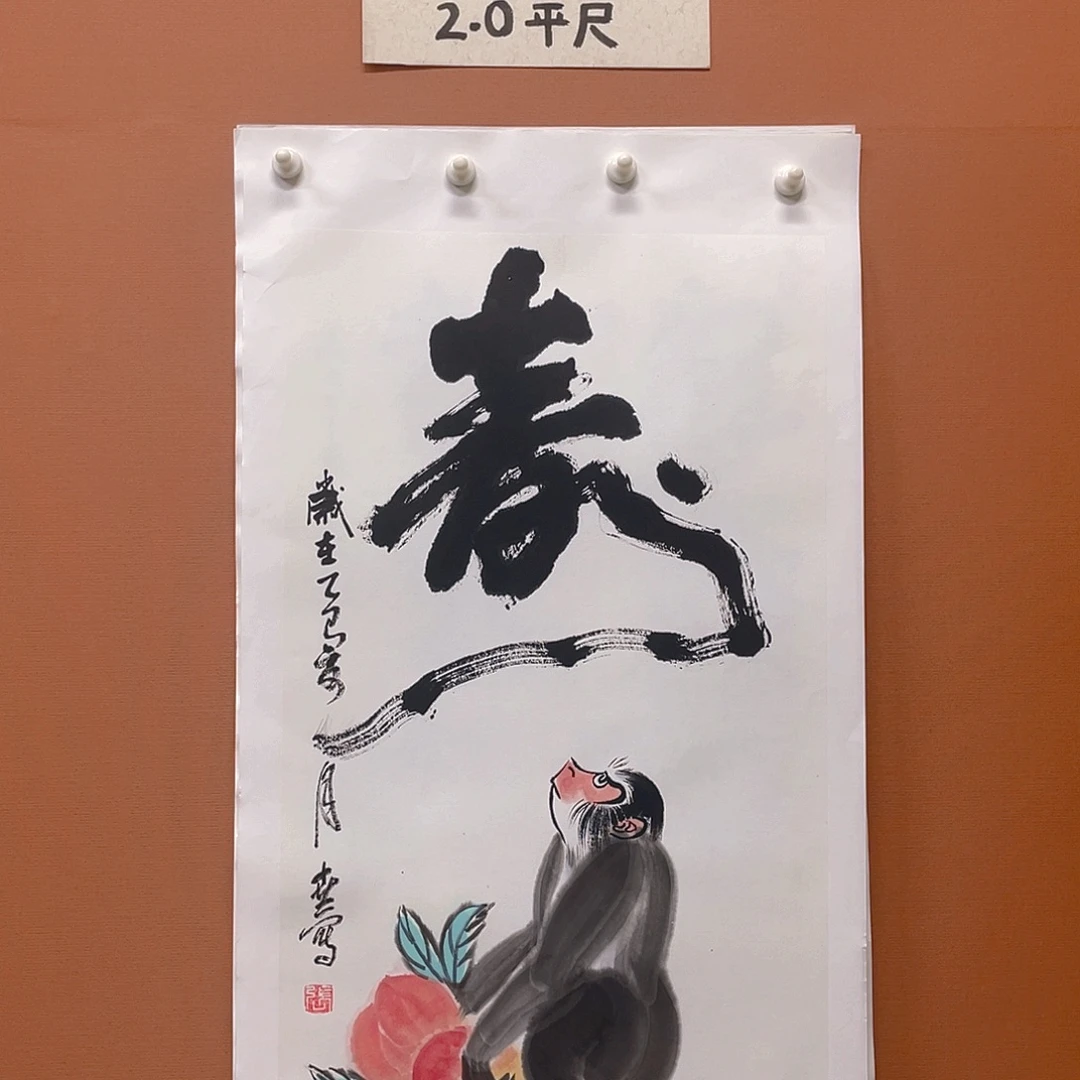 2.0平尺
寿
歲在乙巳寒月